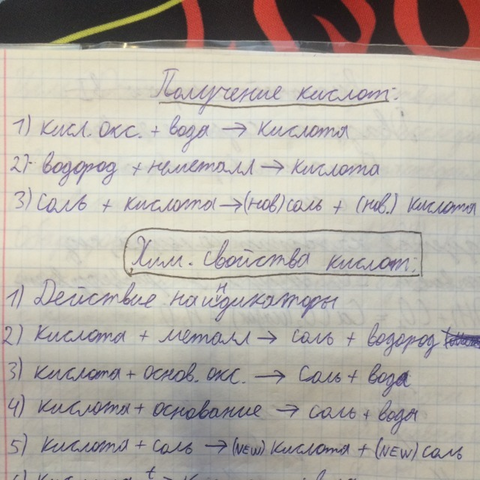 Получение кислот:
1) кисл. окс. + вода → кислота
2) водород + неметалл → кислота
3) соль + кислота → (нов) соль + (нов.) кислота
Хим. свойства кислот:
1) Действие на индикаторы
2) кислота + металл → соль + водород
3) кислота + основ. окс. → соль + вода
4) кислота + основание → соль + воды
5) кислота + соль → (NEW) кислота + (NEW) соль